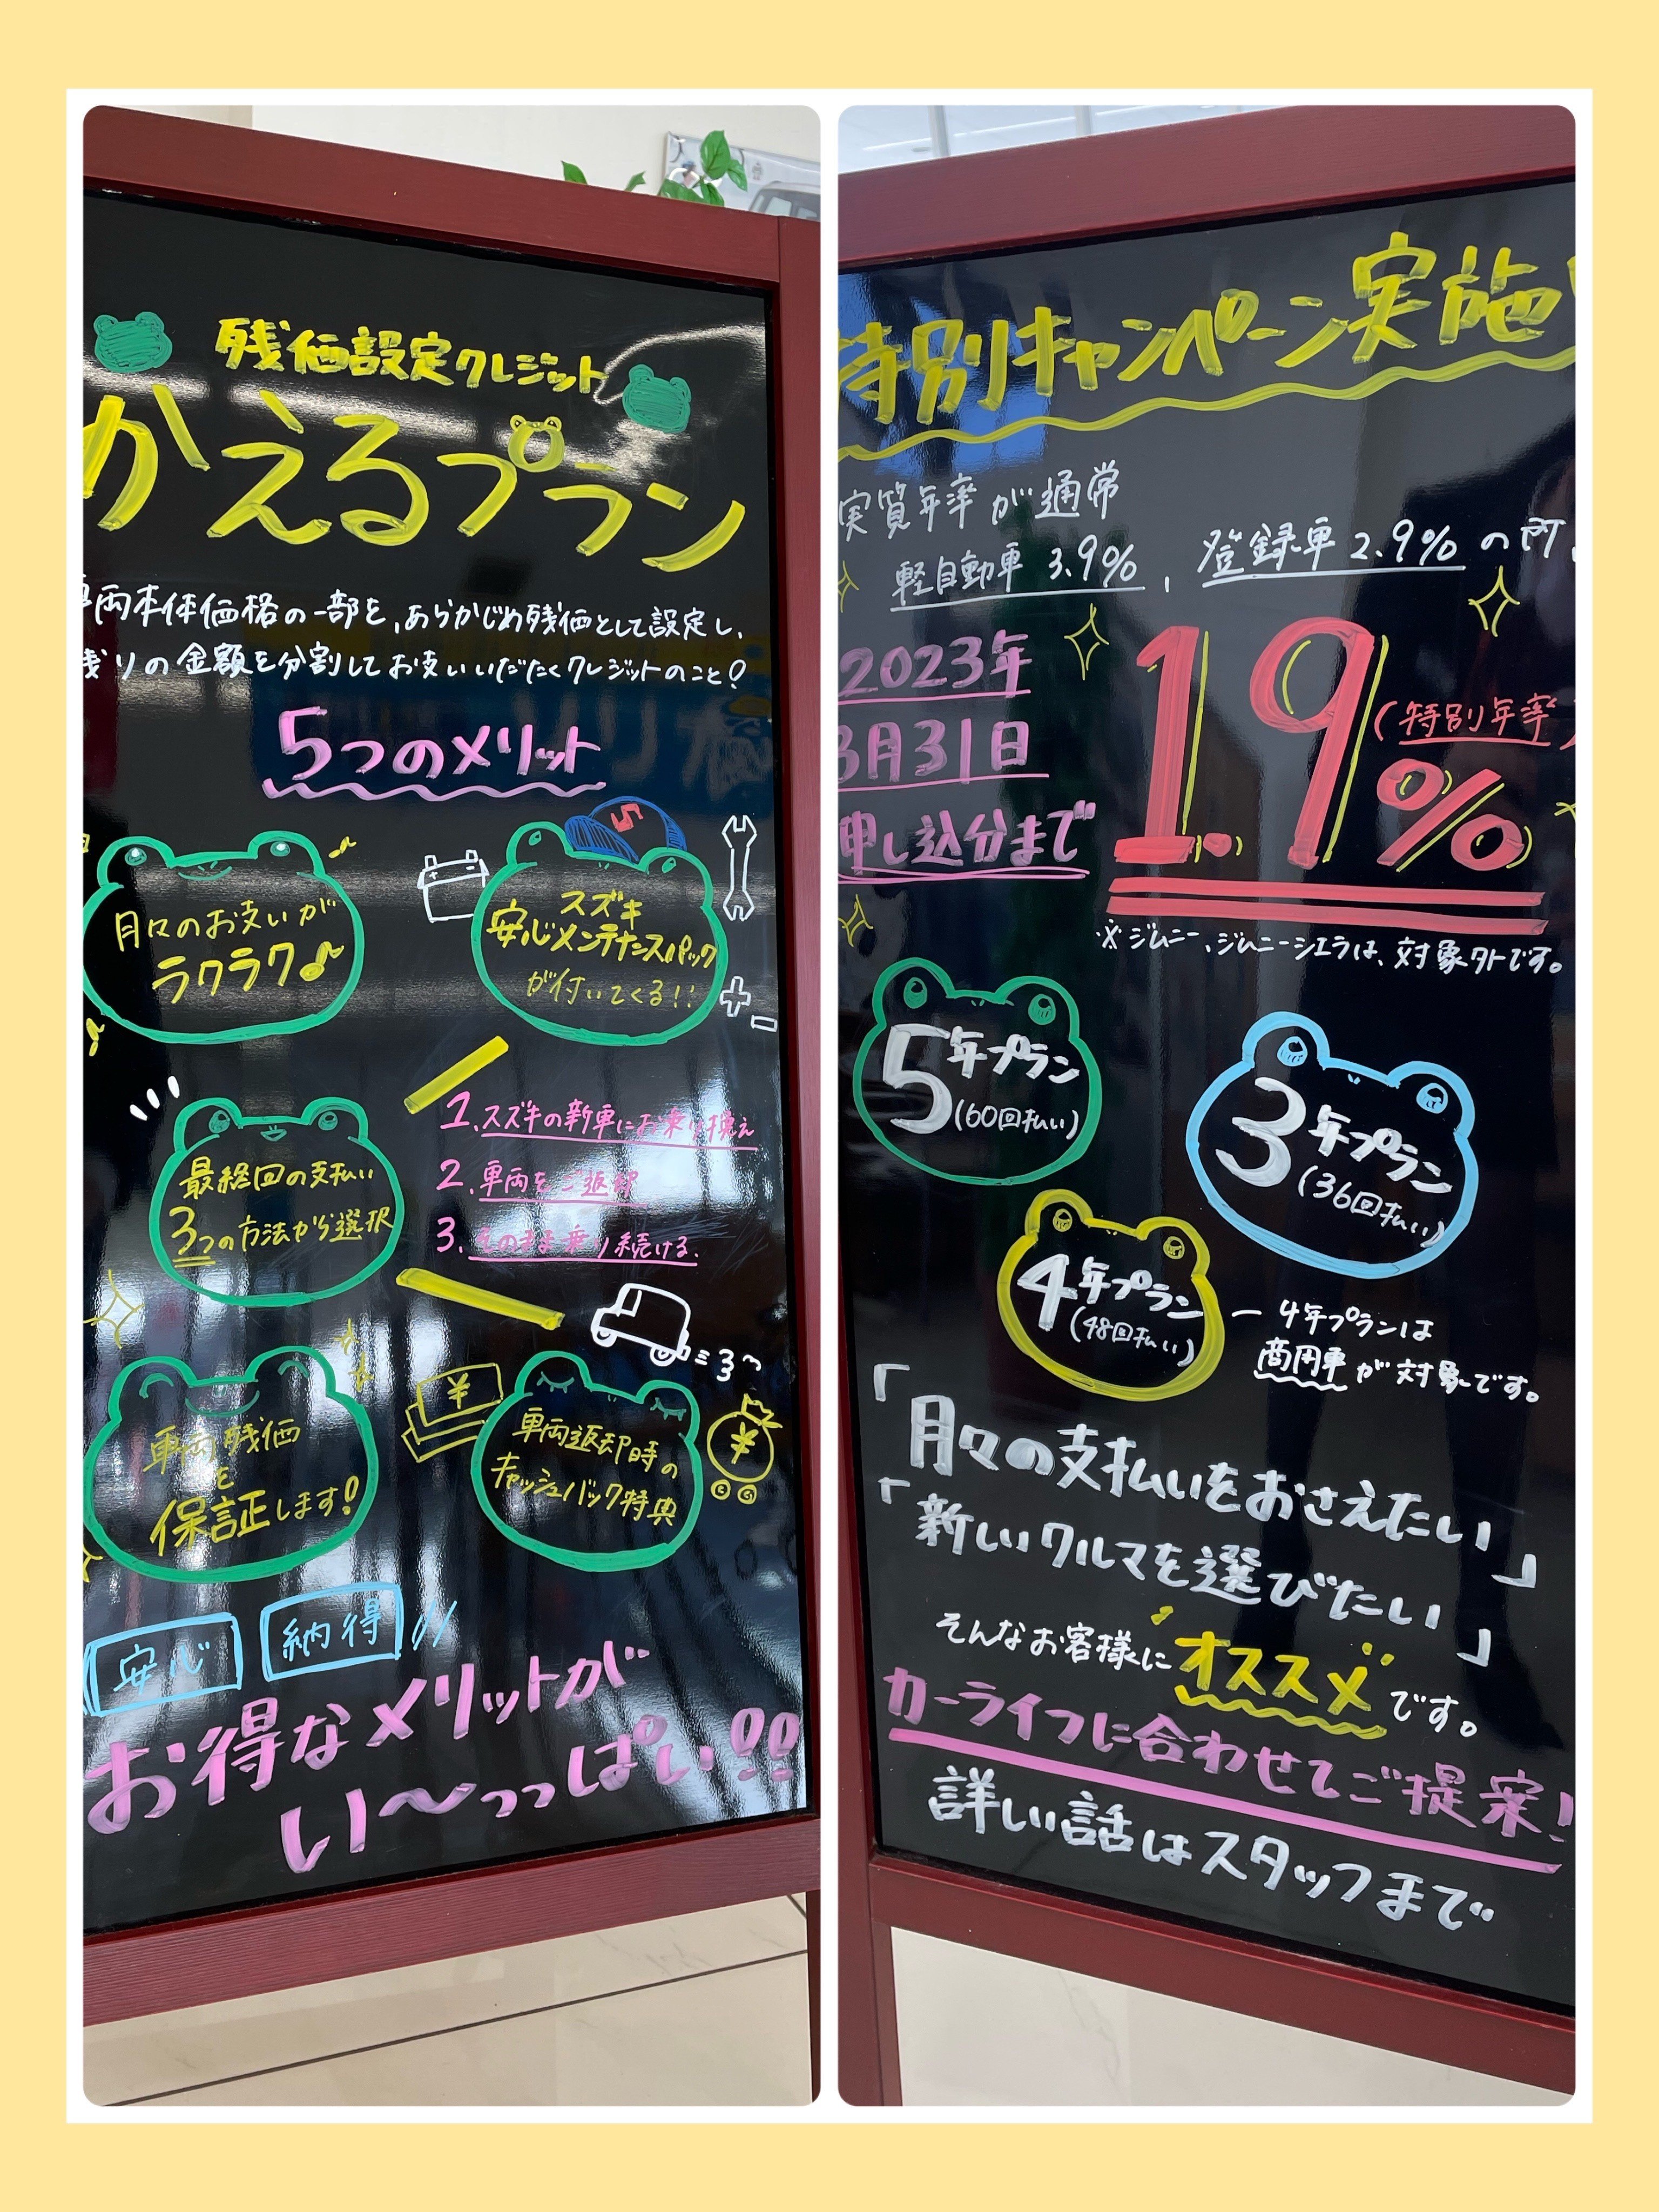 残価設定クレジット
かえるプラン
車両本体価格の一部を、あらかじめ残価として設定し、
残りの金額を分割してお支いいだたくクレジットのこと!
5つのメリット
月々のお支いが
ラクラク♪
スズキ
安心メンテナンスパック
が付いてくる!!
最終回の支払い
3つの方法から選択
1.スズキの新車にお乗り換え
2.車両をご返却
3.そのまま乗り続ける.
車両残価
を
保証します!
¥
車両返却時の
キャッシュバック特典
¥
安心 納得
お得なメリットが
い〜っっぱい!!
特別キャンペーン実施
実質年率が通常
軽自動車 3.9%、登録車2.9%の所
2023年
3月31日
申し込分まで
1.9%
(特別年率)
※ジムニー、ジムニーシエラは、対象外です。
5年プラン
(60回払い)
3年プラン
(36回払い)
4年プラン
(48回払い)
4年プランは
商用車が対象です。
「月々の支払いをおさえたい」
「新しいクルマを選びたい」
そんなお客様にオススメです。
カーライフに合わせてご提案!
詳しい話はスタッフまで